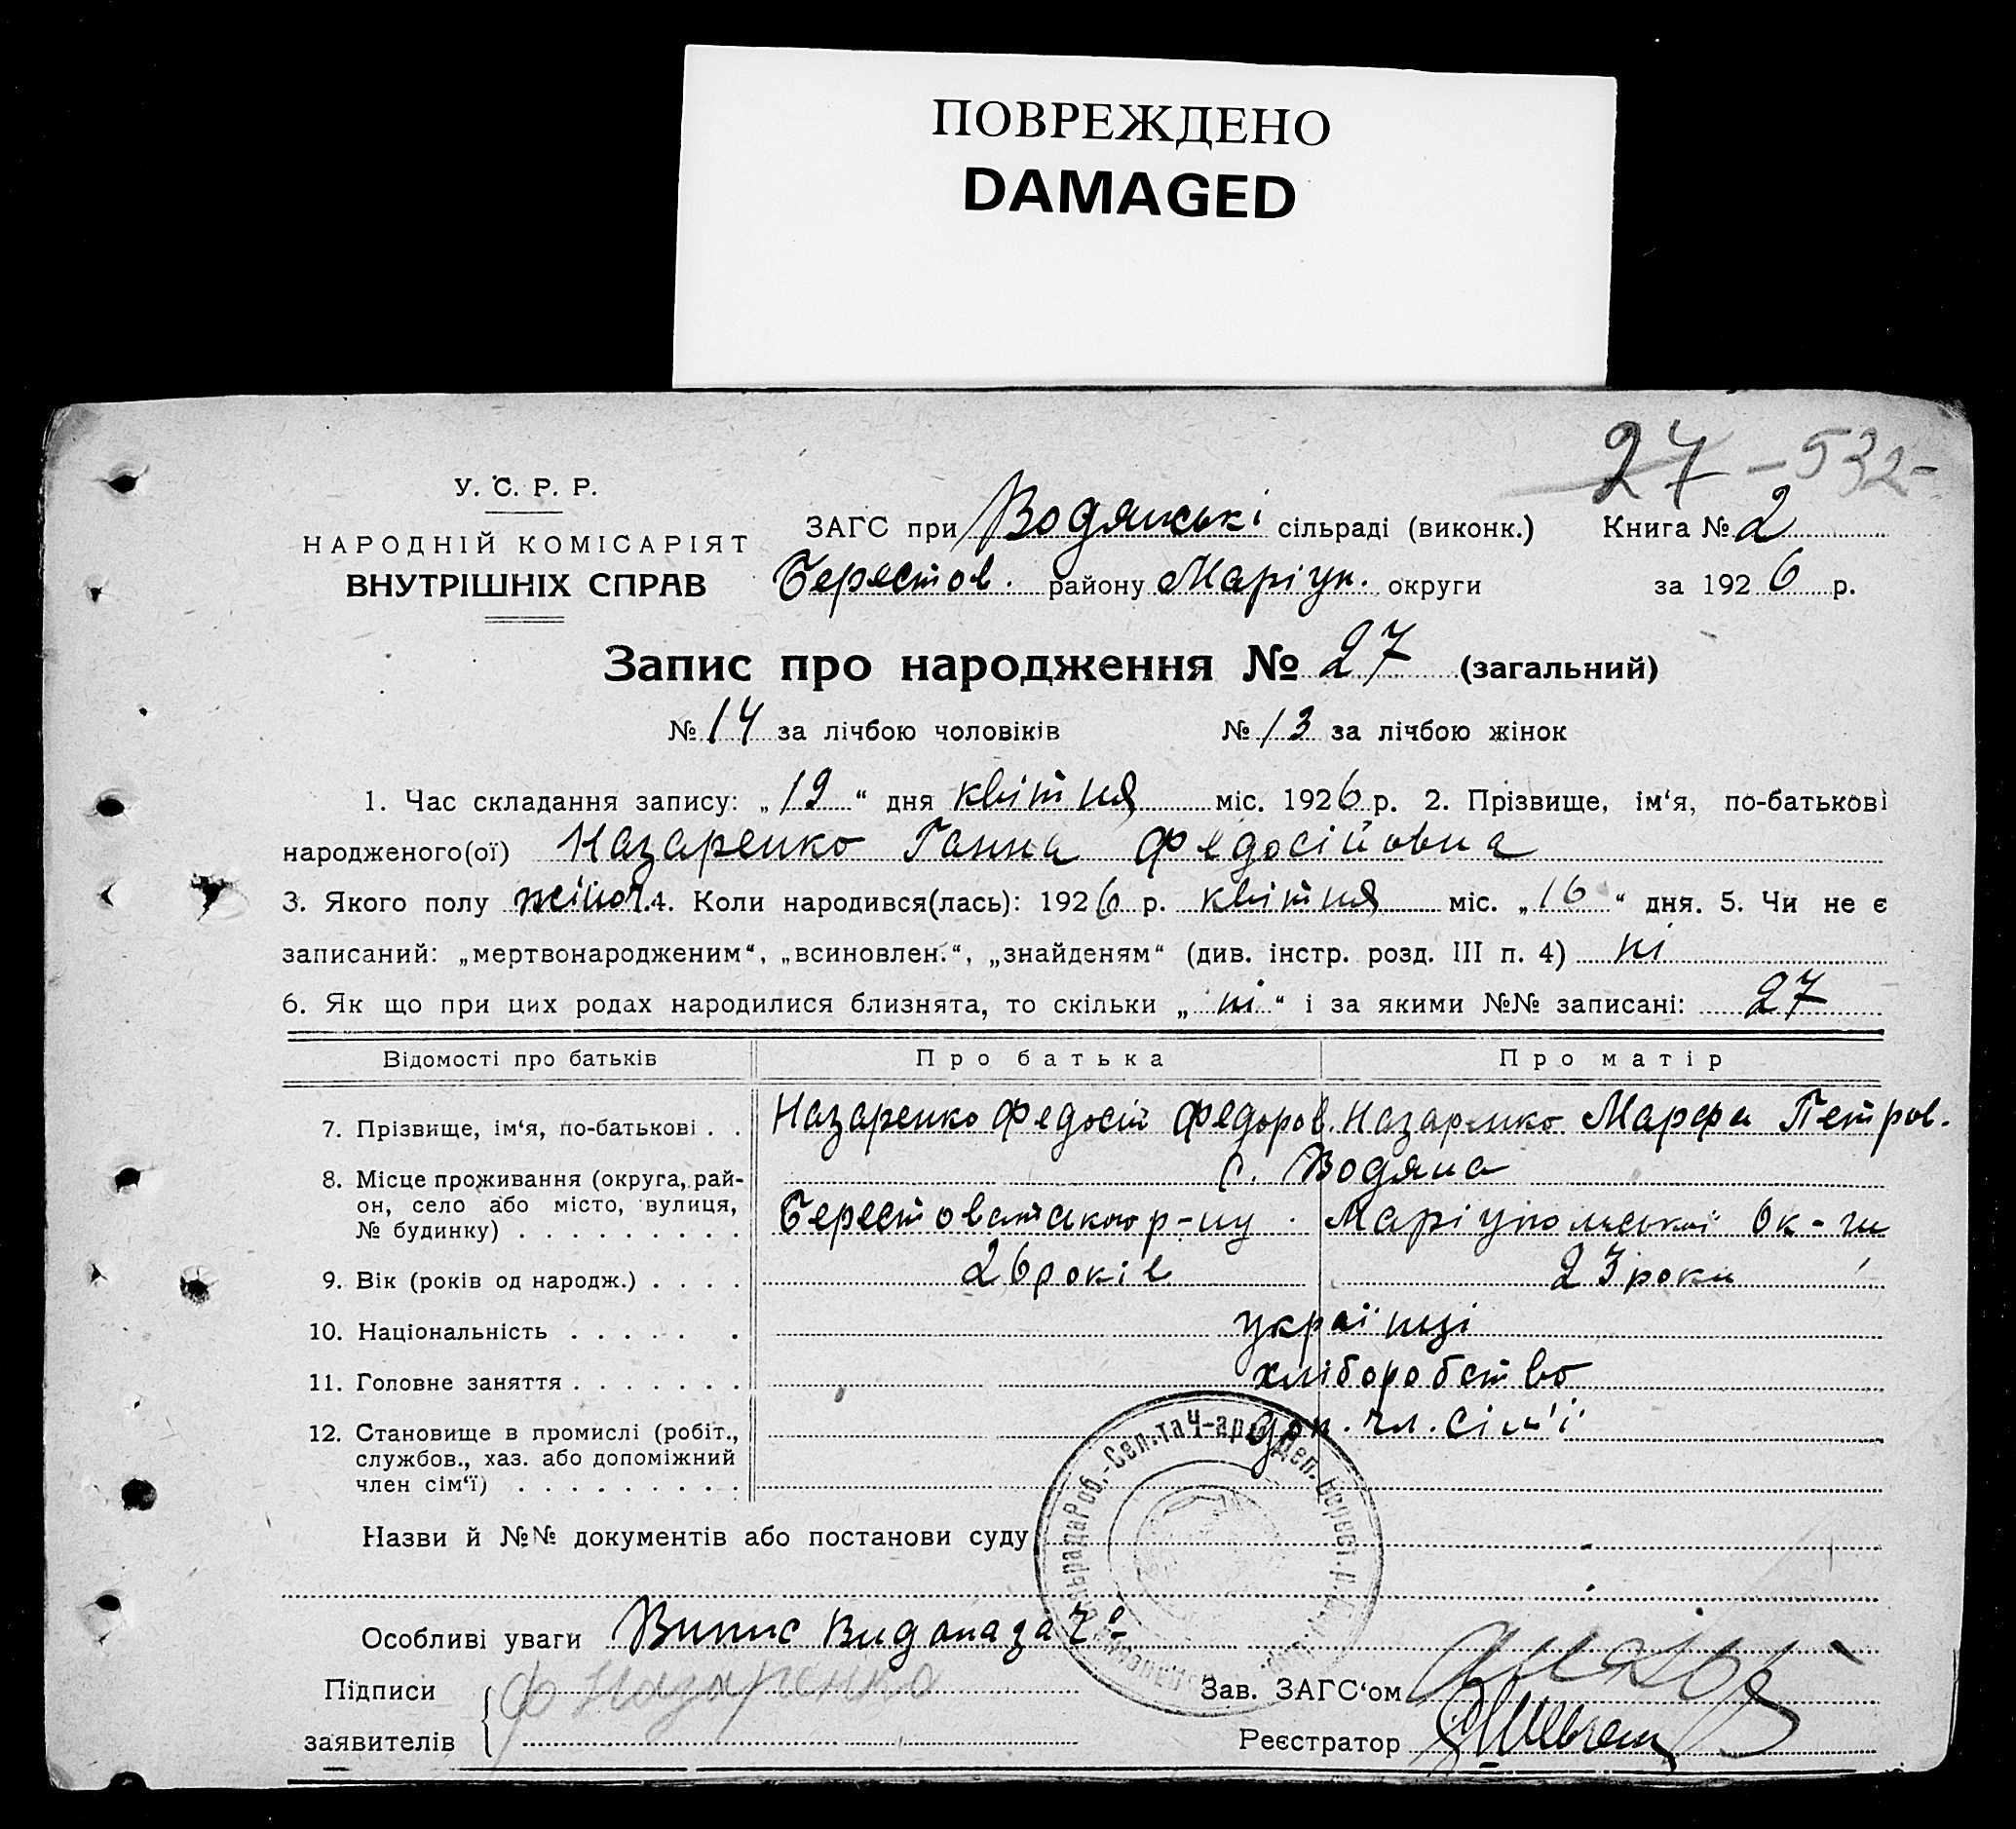 ПОВРЕЖДЕНО
DAMAGED
27 - 532 -
У. С. Р. Р.
НАРОДНІЙ КОМІСАРІЯТ
ВНУТРІШНІХ СПРАВ
ЗАГС при Водянські сільраді (виконк.) Книга № 2
Берестов. району Маріуп. округи за 1926 р.
Запис про народження № 27 (загальний)
№ 14 за лічбою чоловіків № 13 за лічбою жінок
1. Час складання запису: „19“ дня квітня міс. 1926 р. 2. Прізвище, ім‘я, по-батькові
народженого(ої) Назаренко Ганна Федосійовна
3. Якого полу жіноч. 4. Коли народився(лась): 1926 р. квітня міс. „16“ дня. 5. Чи не є
записаний: „мертвонародженим“, „всиновлен.“, „знайденям“ (див. інстр. розд. III п. 4) ні
6. Як що при цих родах народилися близнята, то скільки „ні“ і за якими №№ записані: 27
Відомості про батьків Про батька Про матір
7. Прізвище, ім‘я, по-батькові . . Назаренко Федосій Федоров. Назаренко Марфа Петров.
8. Місце проживання (округа, рай-
он, село або місто, вулиця,
№ будинку) . . . . . . . . .
с. Водяна
Берестоватського р-ну Маріупольської Ок-ги
9. Вік (років од народж.) . . . . 26 років 23 роки
10. Національність . . . . . . українці
11. Головне заняття . . . . . . . хліборобство
12. Становище в промислі (робіт.,
службов., хаз. або допоміжний
член сім‘ї) . . . . . . . . .
доп. чл. сім'ї
Назви й №№ документів або постанови суду
Особливі уваги Випис
Підписи Ф Назаренко Зав. ЗАГС‘ом
заявителів Реєстратор